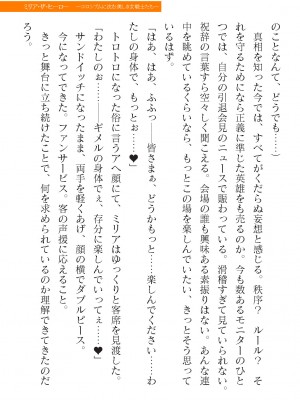 のことなんて、どうでも……）
　真相を知った今では、すべてがくだらぬ妄想と感じる。秩序？　ルール？　そ
れを守るためになら正義に準じた英雄をも売るのか。今も数あるモニターのひと
つでは、自分の引退会見のニュースで賑わっている。滑稽すぎて見ていられない。
祝辞の言葉すら空々しく聞こえる。会場の誰も興味ある素振りはない。あんな連
中を眺めているくらいなら、もっとこの場を楽しんでいたい、きっとそう思って
いるはず。
「はあ、はぁ、ふふ♥――皆さまぁ、どうかもっと……楽しんでくださいませ……わ
たしの身体で、もっとぉ……♥」
　トロトロになった俗に言うアヘ顔にて、ミリアはゆっくりと客席を見渡した。
「わたしのぉ……ギメルの身体でぇ、存分に楽しんでいってぇ……♥」
　サンドイッチになったまま、両手を軽くあげ、顔の横でダブルピース。
　今になってできた。ファンサービス。客の声援に応えること。
　きっと舞台に立ち続けたことで、何を求められているのか理解できてきたのだ
ろう。